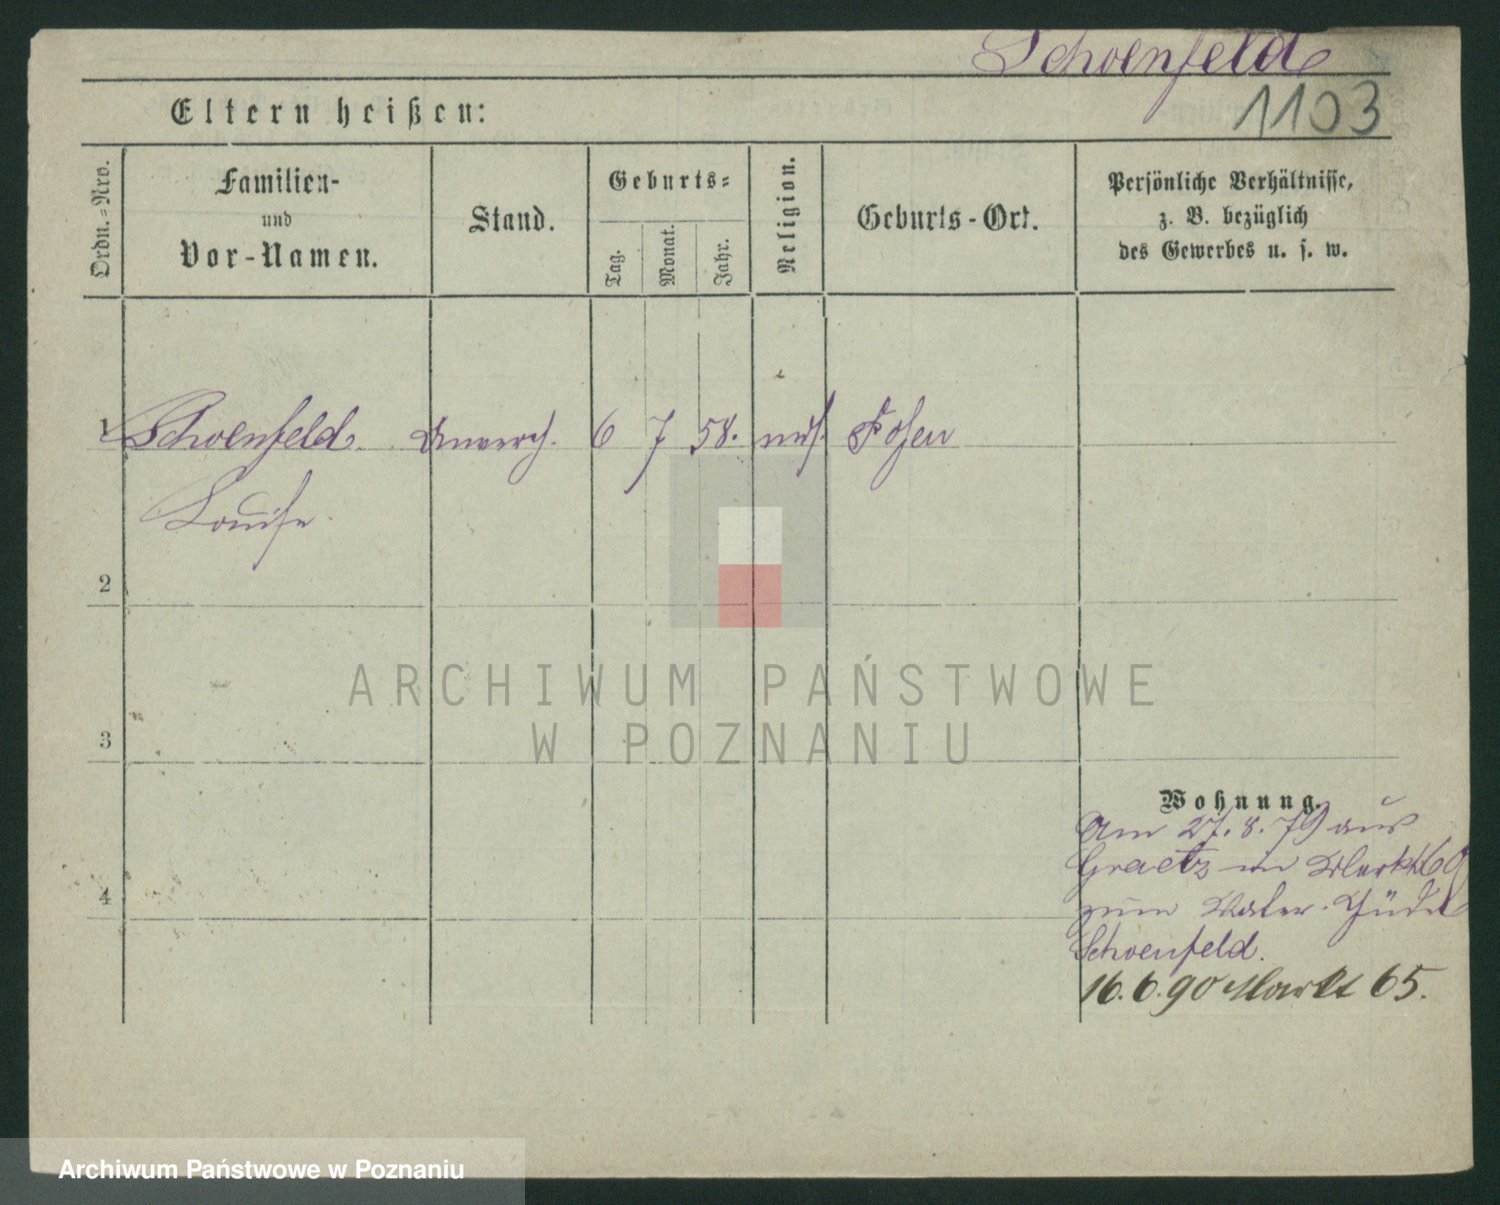 Schoenfeld
1103
Eltern heißen:
Ordn.=Nro.
Familien-
und
Vor-Namen.
Stand.
Geburts=
Tag.
Monat.
Jahr.
Religion.
Geburts-Ort.
Persönliche Verhältnisse,
z. B. bezüglich
des Gewerbes u. s. w.
1 Schoenfeld. 6 7 58. mos. Posen
Louise
2
3
4
Wohnung.
Am 27. 8. 79 aus
Graetz in Markt 69
zum Vater
Schoenfeld.
16. 6. 90 Markt 65.
ARCHIWUM PAŃSTWOWE
W POZNANIU
Archiwum Państwowe w Poznaniu